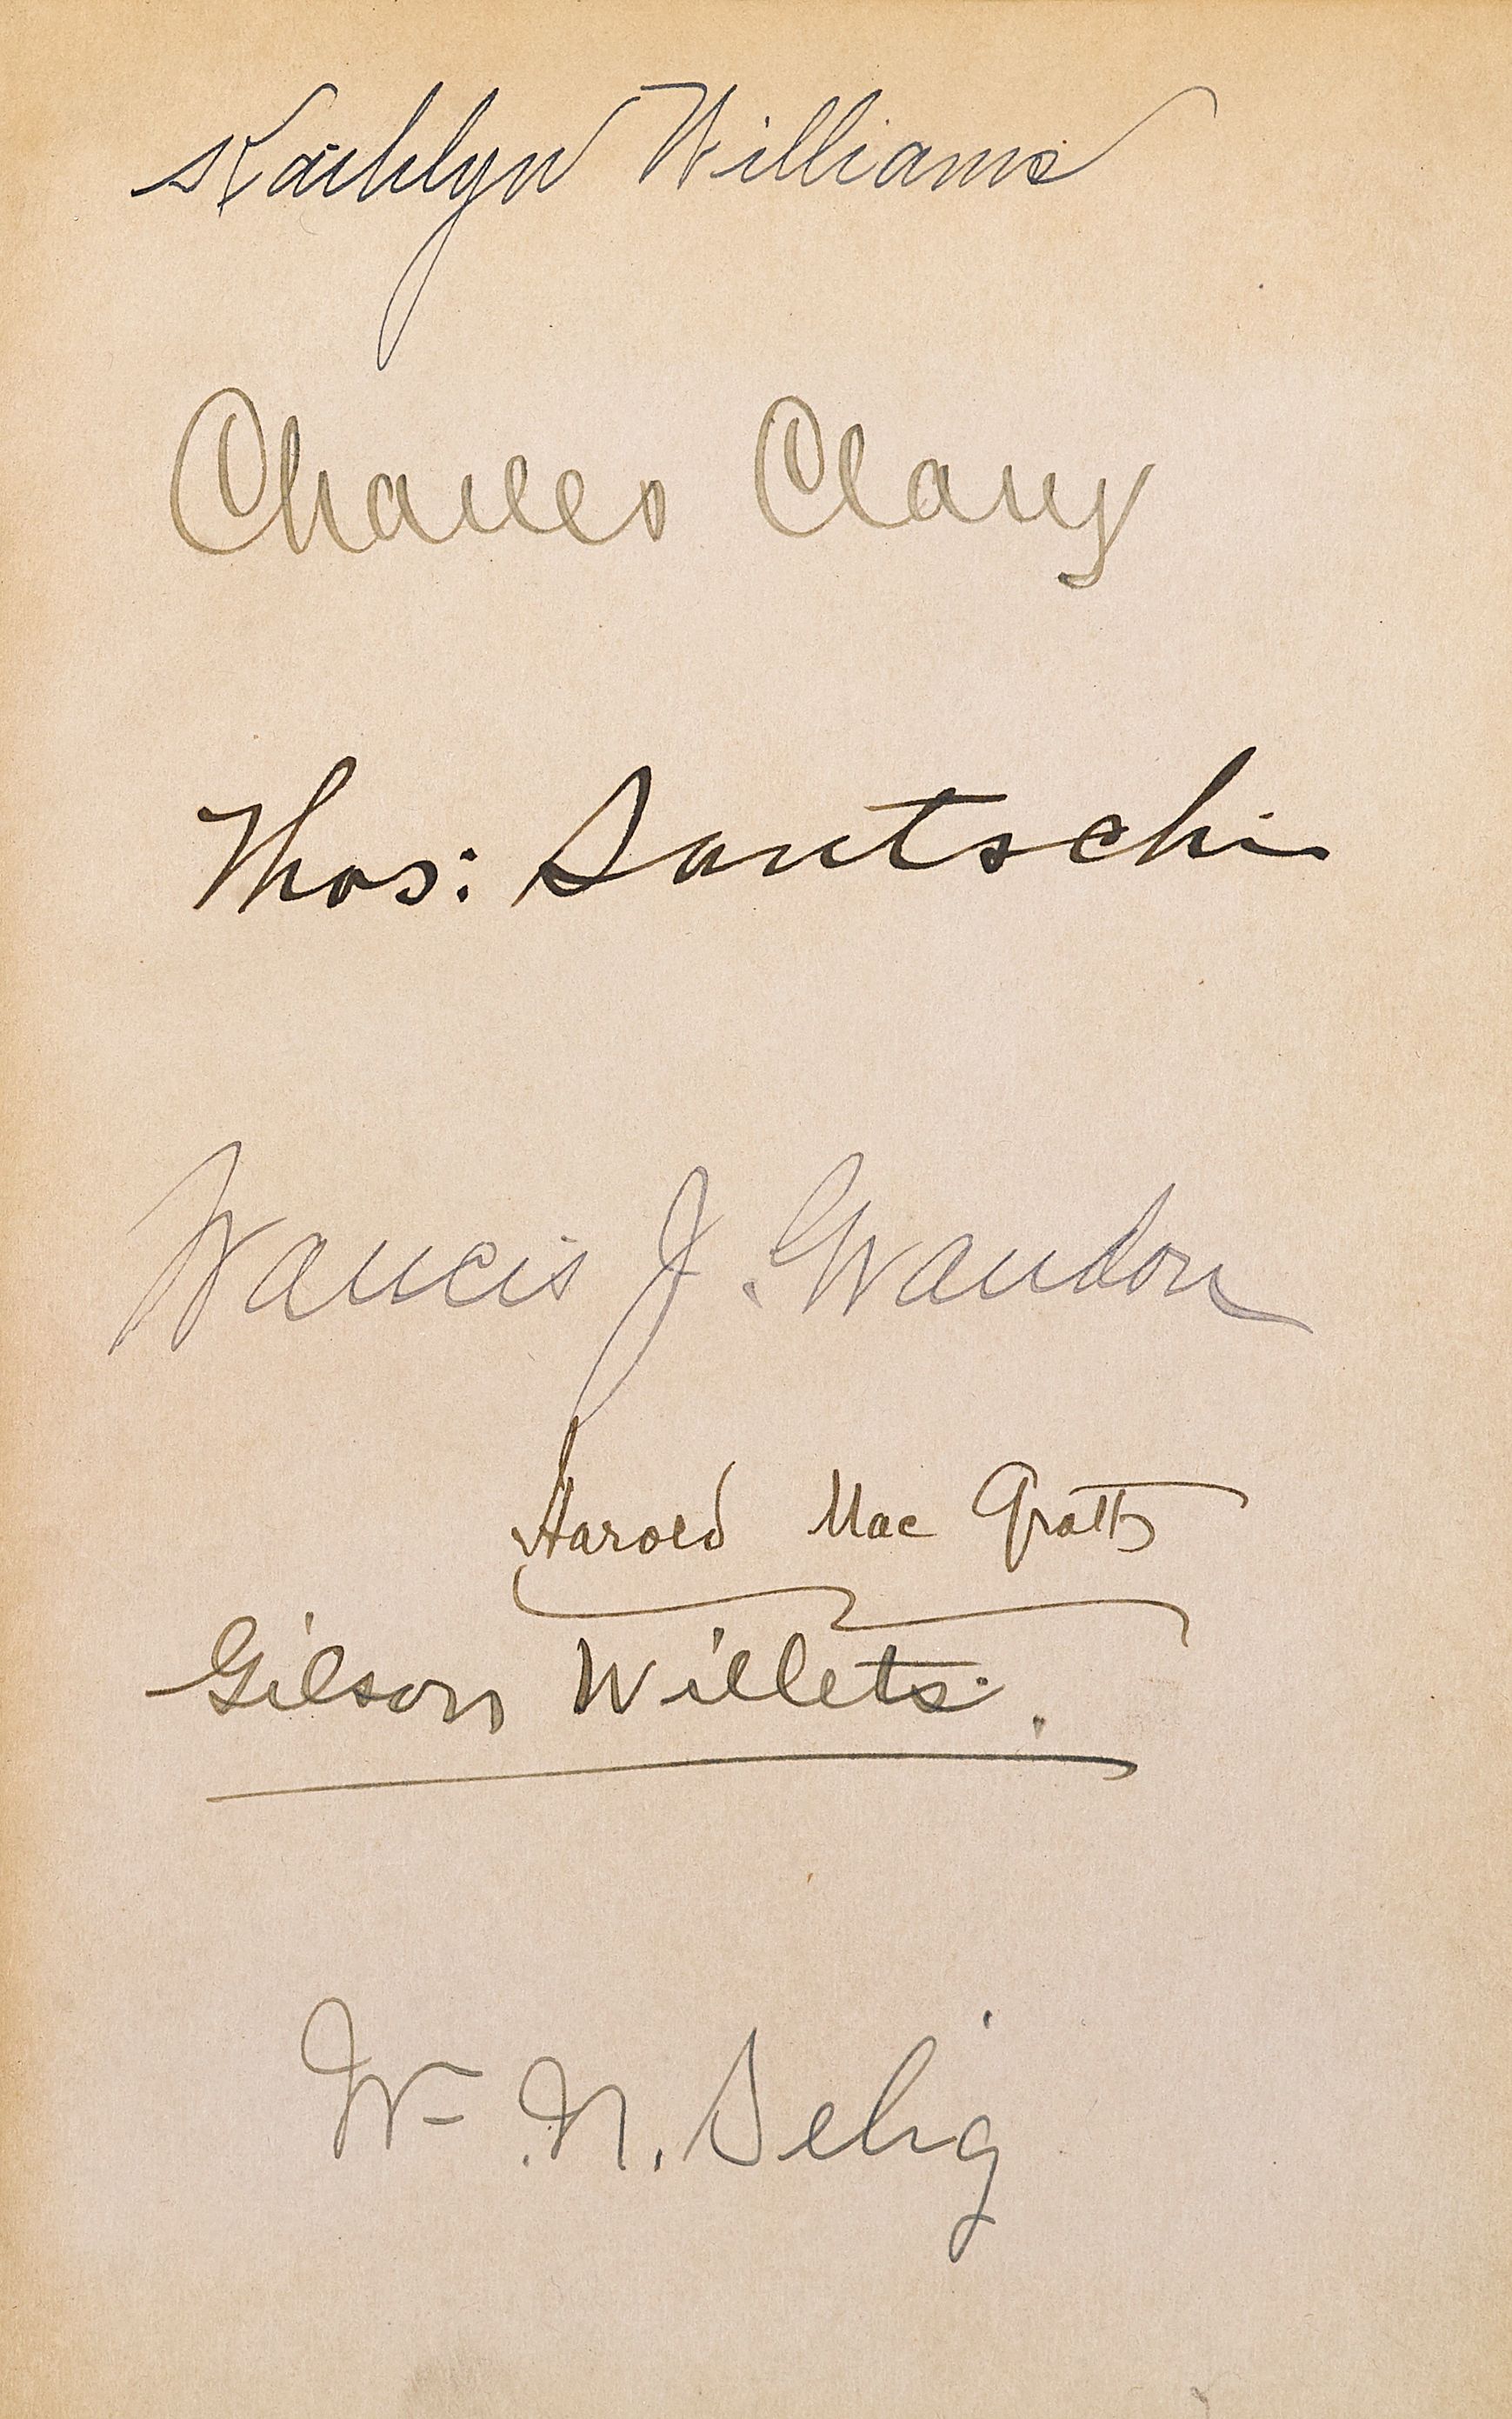 Kathlyn Williams
Charles Clary
Thos: Santschi
Francis J. Grandon
Harold Mac Grath
Gilson Willets.
Wm N. Selig